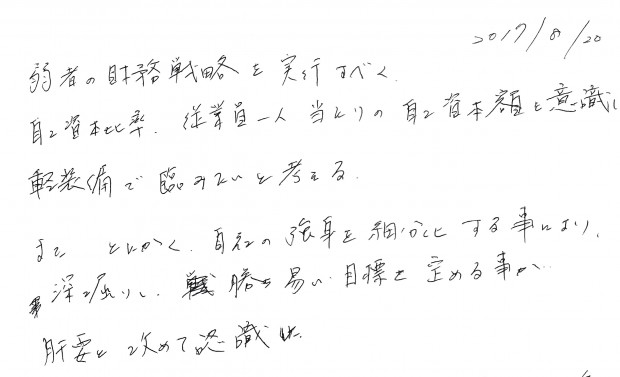 2017/8/20
弱者の財務戦略を実行すべく、
自己資本比率、従業員一人当たりの自己資本額を意識し
軽装備で臨みたいと考える。
また とにかく、自社の強身を細分化する事により、
深掘りし、勝ち易い目標を定める事が、
肝要と改めて認識した。